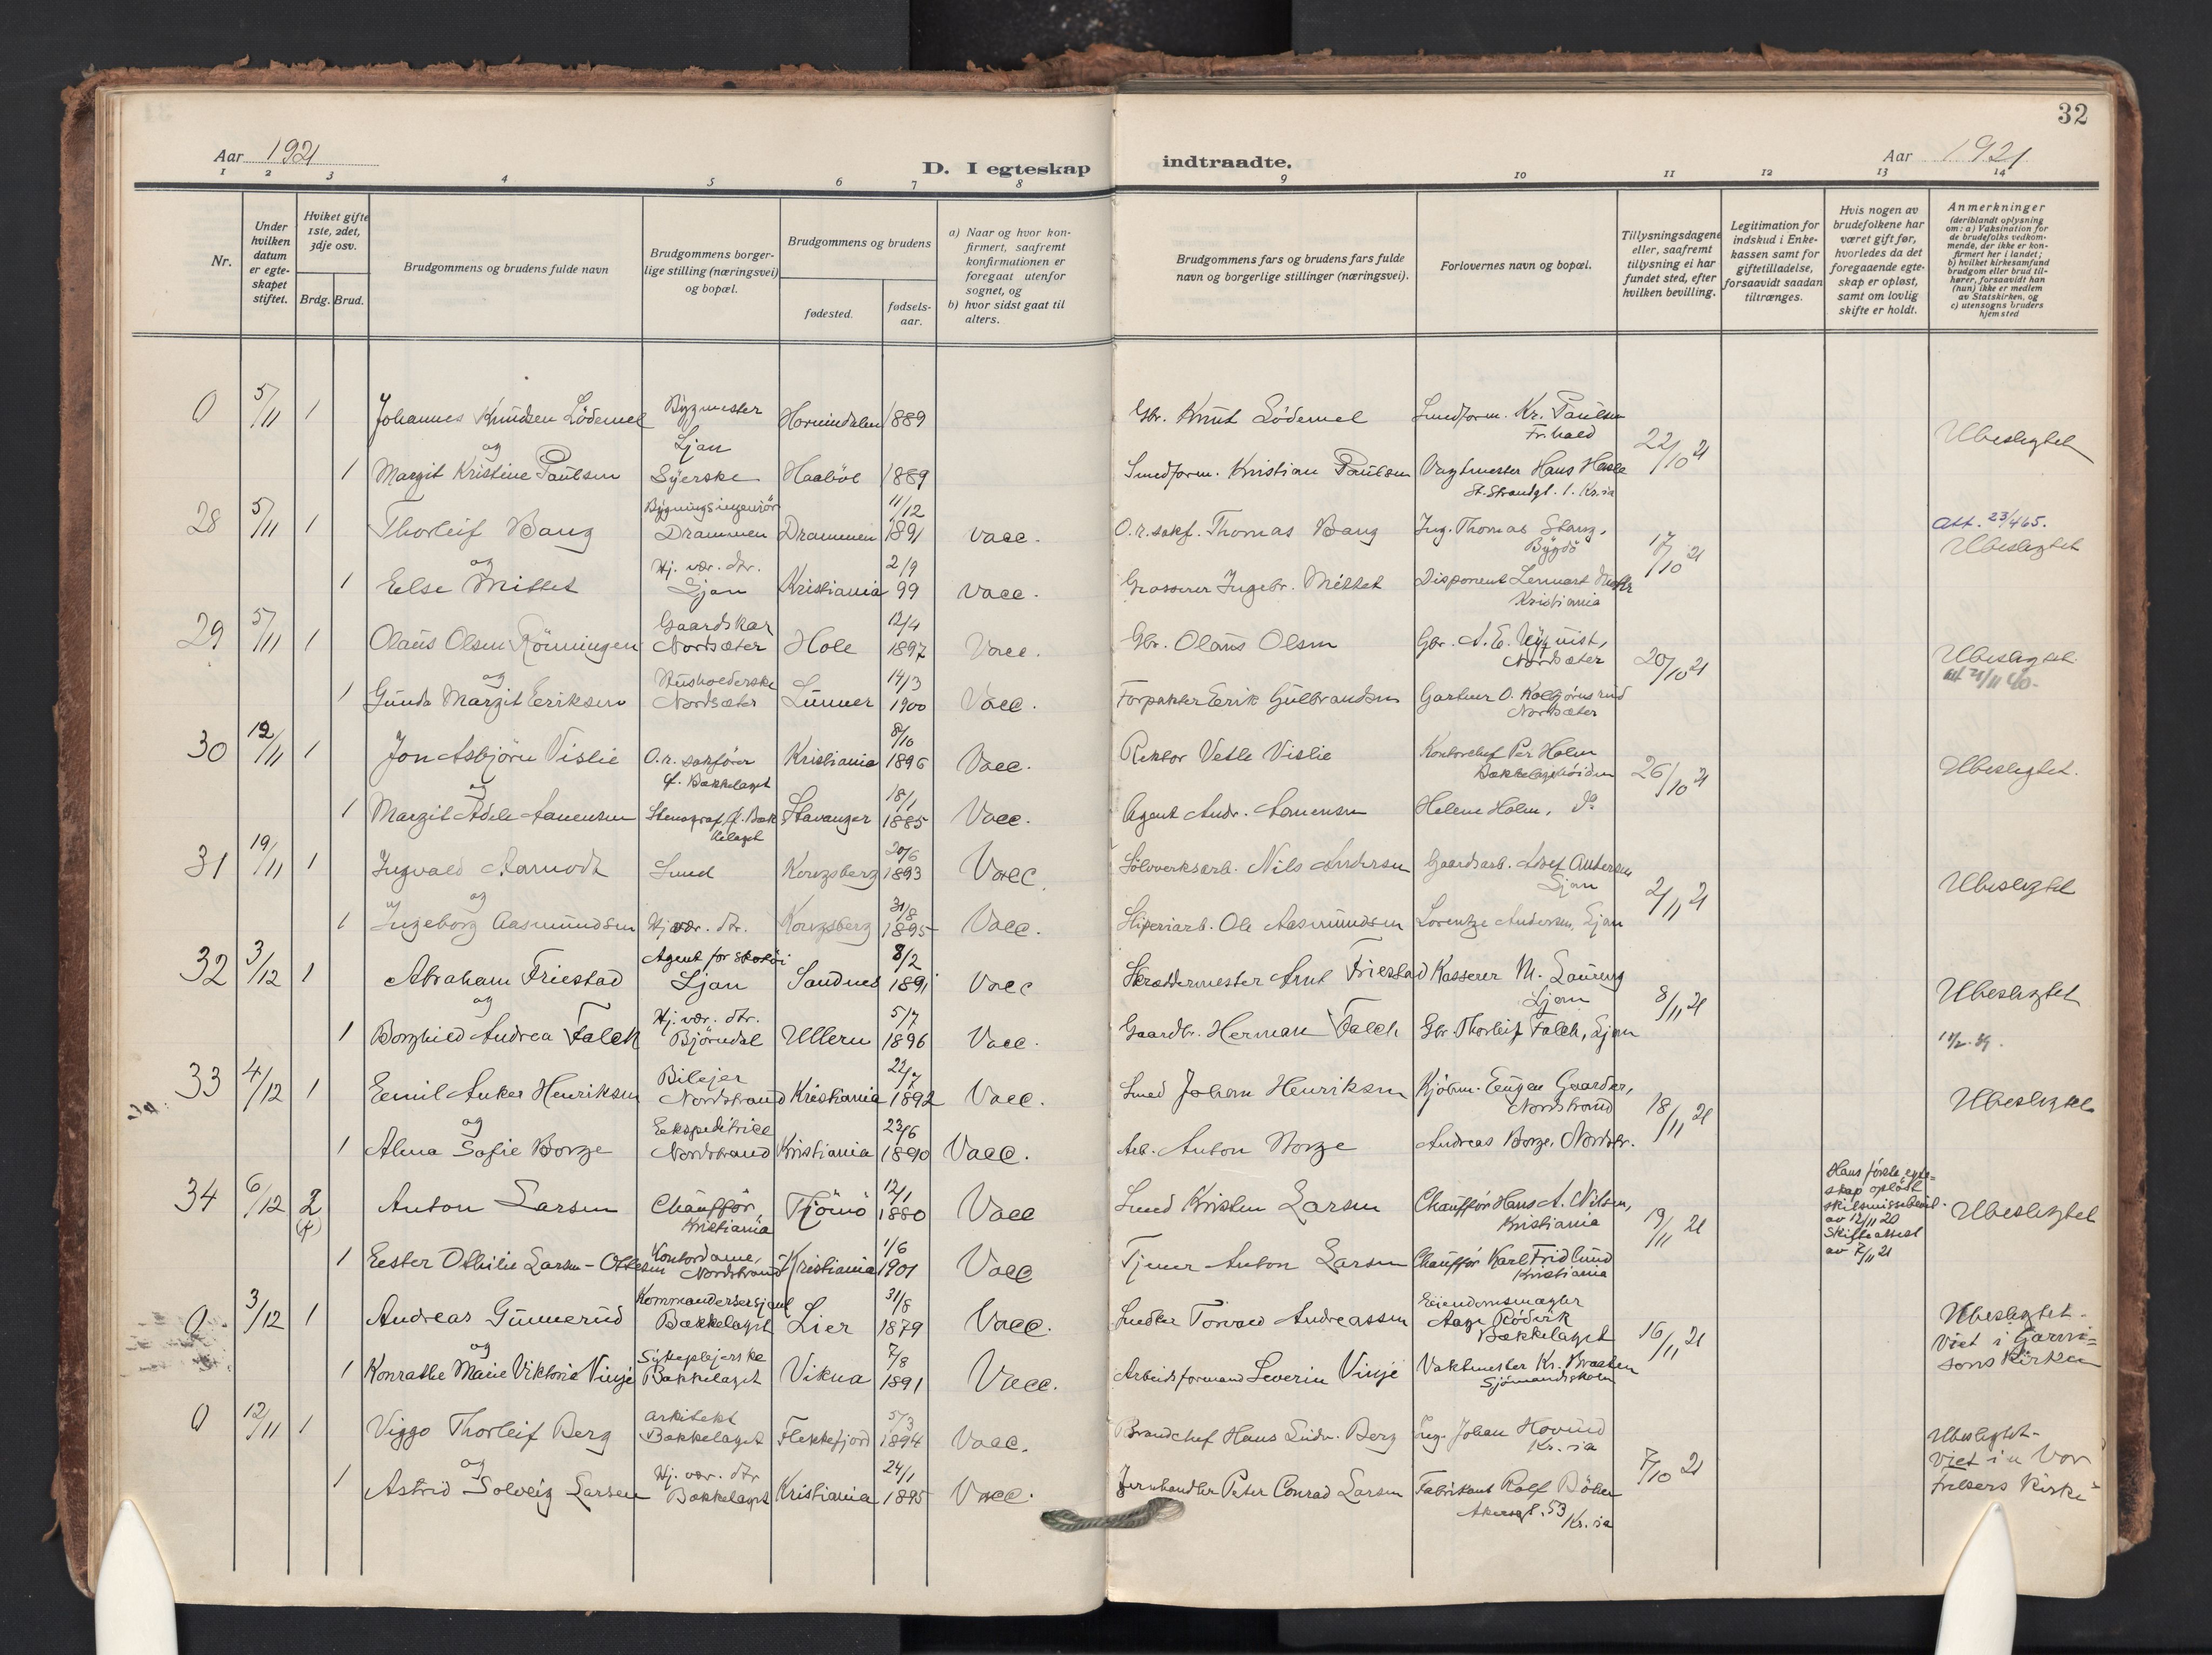 32
Aar 1921
D. I egteskap indtraadte.
Aar 1921
1 2 3 4 5 6 7 8 9 10 11 12 13 14
Nr.
Under hvilken datum er egteskapet stiftet.
Hviket gifte 1ste, 2det, 3dje osv.
Brdg. Brud.
Brudgommens og brudens fulde navn
Brudgommens borgerlige stilling (næringsvei) og bopæl.
Brudgommens og brudens
fødested.
fødselsaar.
a) Naar og hvor konfirmert, saafremt konfirmationen er foregaat utenfor sognet, og
b) hvor sidst gaat til alters.
Brudgommens fars og brudens fars fulde navn og borgerlige stillinger (næringsvei).
Forlovernes navn og bopæl.
Tillysningsdagene eller, saafremt tillysning ei har fundet sted, efter hvilken bevilling.
Legitimation for indskud i Enkekassen samt for giftetilladelse, forsaavidt saadan tiltrænges.
Hvis nogen av brudefolkene har været gift før, hvorledes da det foregaaende egteskap er opløst, samt om lovlig skifte er holdt.
Anmerkninger (deriblandt oplysning om: a) Vaksination for de brudefolks vedkommende, der ikke er konfirmert her i landet; b) hvilket kirkesamfund brudgom eller brud tilhører, forsaavidt han (hun) ikke er medlem av Statskirken, og c) utensogns bruders hjemsted
0 5/11 1 Johannes Knudsen Lödemel Bygmester Ljan Hornindalen 1889 Gbr. Knut Lödemel Smedform. Kr. Paulsen Frihald 22/10 21 Ubeslegtet
og
1 Margit Kristine Paulsen Syerske Haaböl 1889 Smedform. Kristian Paulsen Vagtmester Hans Hasle St. Strandgt. 1. Kr.ia
28 5/11 1 Thorleif Bang Bygningsingeniör Drammen Drammen 11/12 1891 Vacc. O.r.sakf. Thomas Bang Ing. Thomas Stang, Bygdö 17/10 21 Att. 23/4 65. Ubeslegtet
og
1 Else Mittet Hj. vær. dtr. Ljan Kristiania 2/9 99 Vacc. Grosserer Ingebr. Mittet Disponent Lennart Kristiania
29 5/11 1 Olaus Olsen Rönningen Gaardskar Nordsæter Hole 12/4 1897 Vacc. Gbr. Olaus Olsen Gbr. A. E. Nyquist, Nordsæter 20/10 21 Ubeslegtet.
og
1 Gunda Margit Eriksen Husholderske Nordsæter Lunner 14/3 1900 Vacc. Forpakter Erik Gulbrandsen Gartner O. Kolbjørnsrud Nordsæter
30 12/11 1 Jon Asbjörn Vislie O.r. sakförer N. Bækkelaget Kristiania 8/10 1896 Vacc. Rektor Vetle Vislie Kontorchef Per Holm Bækkelagshöiden 26/10 21 Ubeslegtet.
og
1 Margit Adele Aanensen Stenograf N. Bækkelaget Stavanger 18/1 1885 Vacc. Agent Andr. Aanensen Helene Holm, do
31 19/11 1 Ingvald Aamodt Smed Kongsberg 20/6 1893 Vacc. Sölvverksarb. Nils Andersen Gaardsarb. Josef Andersen Ljan 2/11 21 Ubeslegtet
og
1 Ingeborg Aasmundsen Hj. vær. dtr. Kongsberg 31/8 1895 Vacc. Sliperiarb. Ole Aasmundsen Lorentze Andersen, Ljan
32 3/12 1 Abraham Friestad Agent for skotöi Ljan Sandnes 8/2 1891 Vacc Skræddermester Arnt Friestad Kasserer M. Laureng Ljan 8/11 21 Ubeslegtet
og
1 Borghild Andrea Falch Hj. vær. dtr. Björndal Ullern 5/7 1896 Vacc. Gaardbr. Herman Falch Gbr. Thorleif Falch, Ljan
33 4/12 1 Emil Anker Henriksen Bilejer Nordstrand Kristiania 22/7 1892 Vacc. Smed Johan Henriksen Kjöbm. Eugen Gaarder, Nordstrand 18/11 21 Ubeslegtet
og
1 Alma Sofie Borge Ekspeditrice Nordstrand Kristiania 23/6 1890 Vacc. Arb. Anton Borge Andreas Borge, Nordstr.
34 6/12 2 (f) Anton Larsen Chauffør, Kristiania Tjömö 12/1 1880 Vacc Smed Kristen Larsen Chauffør Hans A. Nilsen, Kristiania 19/11 21 Hans förste egteskap oplöst skilsmissebevil. av 12/11 20 Skifteattest av 7/11 21 Ubeslegtet
1 Ester Othilie Larsen-Ottesen Kontordame, Nordstrand Kristiania 1/6 1901 Vacc Tjener Anton Larsen Chauffør Karl Fridlund Kristiania
0 3/12 1 Andreas Gunnerud Kommandersersjant Bækkelaget Lier 31/8 1879 Vacc. Snedker Torvald Andreassen Eiendomsmægler Aage Rödvik Bækkelaget 16/11 21 Ubeslegtet. Viet i Garnisons Kirken
og
1 Konradle Marie Viktoria Vinje Sykepleierske Bækkelaget Vikna 7/8 1891 Vacc. Arbeidsformand Severin Vinje Vaktmester Kr. Braaten Sjömandsskolen
0 12/11 1 Viggo Thorleif Berg Arkitekt Bækkelaget Flekkefjord 5/3 1894 Vacc. Brandchef Hans Ludv. Berg Ing. Johan Hovind Kr.ia 7/10 21 Ubeslegtet. Viet i Vor frelsers Kirke
og
1 Astrid Solveig Larsen Hj. vær. dtr Bækkelaget Kristiania 24/1 1895 Vacc. Jernhandler Peter Conrad Larsen Fabrikant Rolf Akersgt. 53 Kr.ia